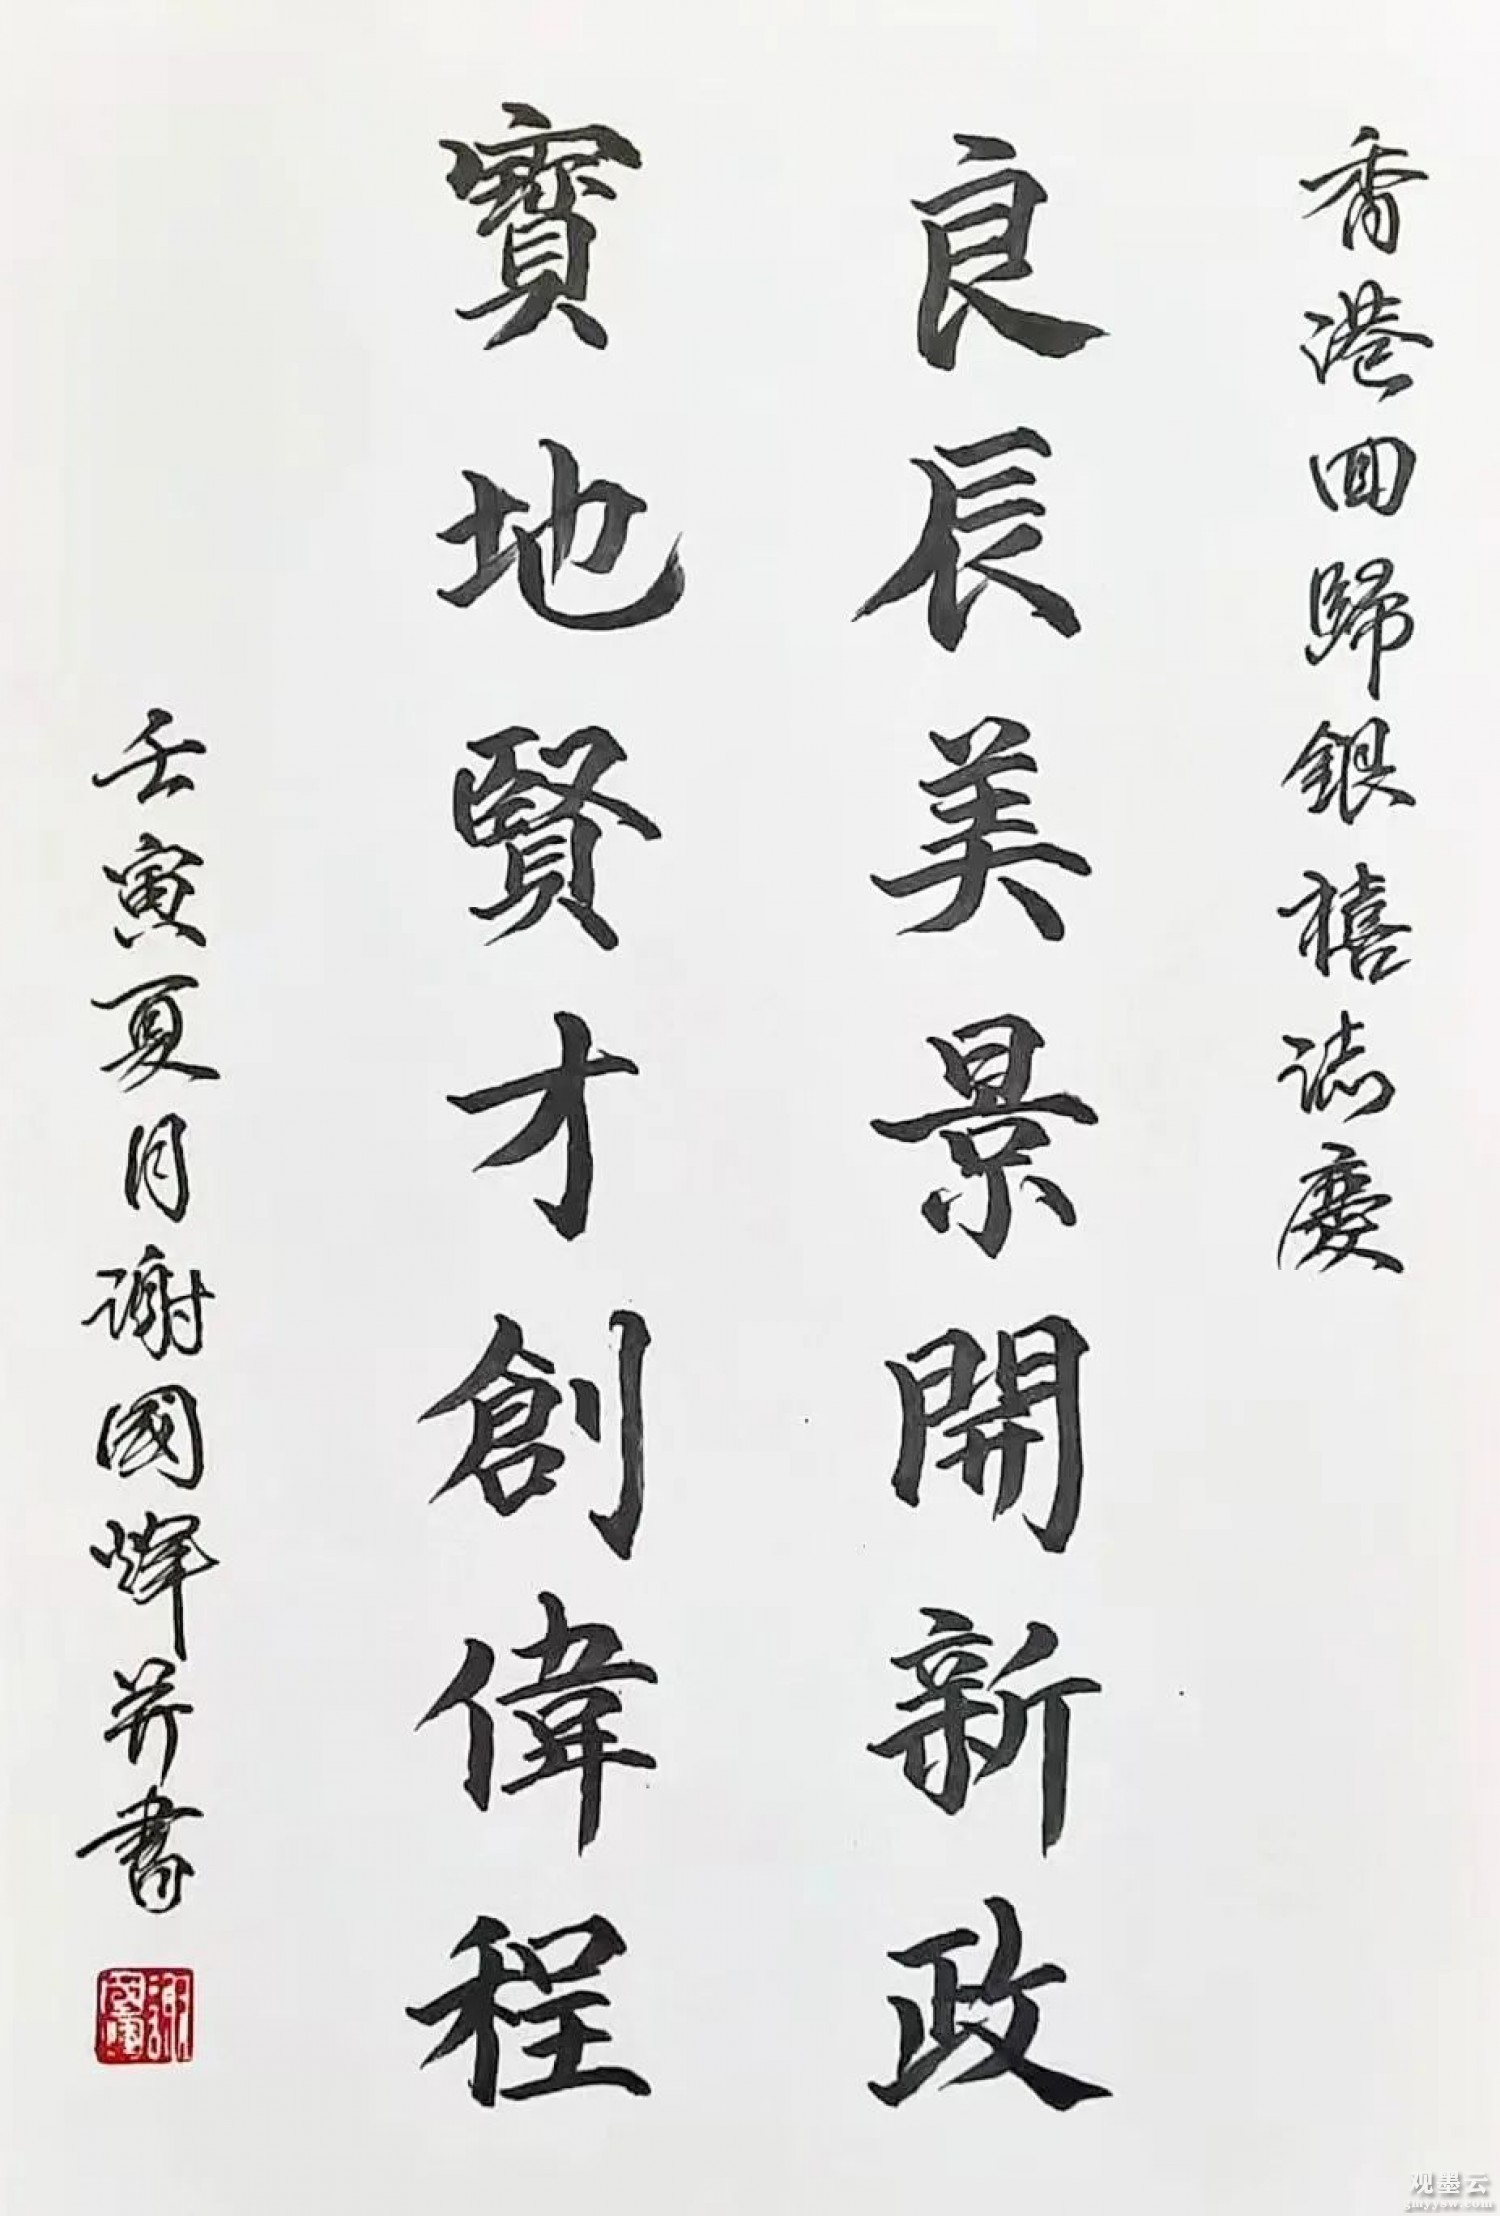 香港回歸銀禧誌慶
良辰美景開新政
寶地賢才創偉程
壬寅夏月謝國輝并書
观墨云
gmyysw.com